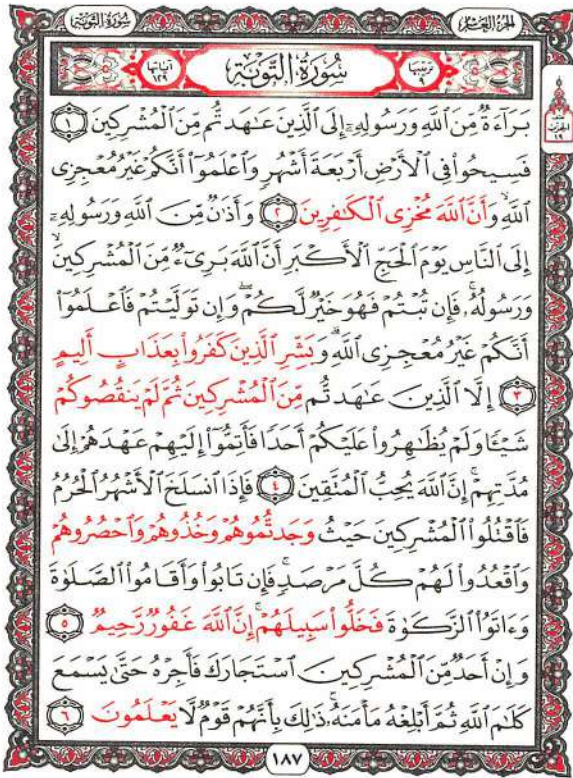 الجزء العاشر
سُورَةُ التَّوْبَةِ
ترتيبها ٩
سُورَةُ التَّوْبَةِ
آياتها ١٢٩
بَرَآءَةٌ مِّنَ ٱللَّهِ وَرَسُولِهِۦٓ إِلَى ٱلَّذِينَ عَٰهَدتُّم مِّنَ ٱلْمُشْرِكِينَ ١
فَسِيحُوا۟ فِى ٱلْأَرْضِ أَرْبَعَةَ أَشْهُرٍ وَٱعْلَمُوٓا۟ أَنَّكُمْ غَيْرُ مُعْجِزِى
ٱللَّهِ ۙ وَأَنَّ ٱللَّهَ مُخْزِى ٱلْكَٰفِرِينَ ٢ وَأَذَٰنٌ مِّنَ ٱللَّهِ وَرَسُولِهِۦٓ
إِلَى ٱلنَّاسِ يَوْمَ ٱلْحَجِّ ٱلْأَكْبَرِ أَنَّ ٱللَّهَ بَرِىٓءٌ مِّنَ ٱلْمُشْرِكِينَ ۙ
وَرَسُولُهُۥ ۚ فَإِن تُبْتُمْ فَهُوَ خَيْرٌ لَّكُمْ ۖ وَإِن تَوَلَّيْتُمْ فَٱعْلَمُوٓا۟
أَنَّكُمْ غَيْرُ مُعْجِزِى ٱللَّهِ ۗ وَبَشِّرِ ٱلَّذِينَ كَفَرُوا۟ بِعَذَابٍ أَلِيمٍ
٣ إِلَّا ٱلَّذِينَ عَٰهَدتُّم مِّنَ ٱلْمُشْرِكِينَ ثُمَّ لَمْ يَنقُصُوكُمْ
شَيْـًٔا وَلَمْ يُظَٰهِرُوا۟ عَلَيْكُمْ أَحَدًا فَأَتِمُّوٓا۟ إِلَيْهِمْ عَهْدَهُمْ إِلَىٰ
مُدَّتِهِمْ ۚ إِنَّ ٱللَّهَ يُحِبُّ ٱلْمُتَّقِينَ ٤ فَإِذَا ٱنسَلَخَ ٱلْأَشْهُرُ ٱلْحُرُمُ
فَٱقْتُلُوا۟ ٱلْمُشْرِكِينَ حَيْثُ وَجَدتُّمُوهُمْ وَخُذُوهُمْ وَٱحْصُرُوهُمْ
وَٱقْعُدُوا۟ لَهُمْ كُلَّ مَرْصَدٍ ۚ فَإِن تَابُوا۟ وَأَقَامُوا۟ ٱلصَّلَوٰةَ
وَءَاتَوُا۟ ٱلزَّكَوٰةَ فَخَلُّوا۟ سَبِيلَهُمْ ۚ إِنَّ ٱللَّهَ غَفُورٌ رَّحِيمٌ ٥
وَإِنْ أَحَدٌ مِّنَ ٱلْمُشْرِكِينَ ٱسْتَجَارَكَ فَأَجِرْهُ حَتَّىٰ يَسْمَعَ
كَلَٰمَ ٱللَّهِ ثُمَّ أَبْلِغْهُ مَأْمَنَهُۥ ۚ ذَٰلِكَ بِأَنَّهُمْ قَوْمٌ لَّا يَعْلَمُونَ ٦
١٨٧